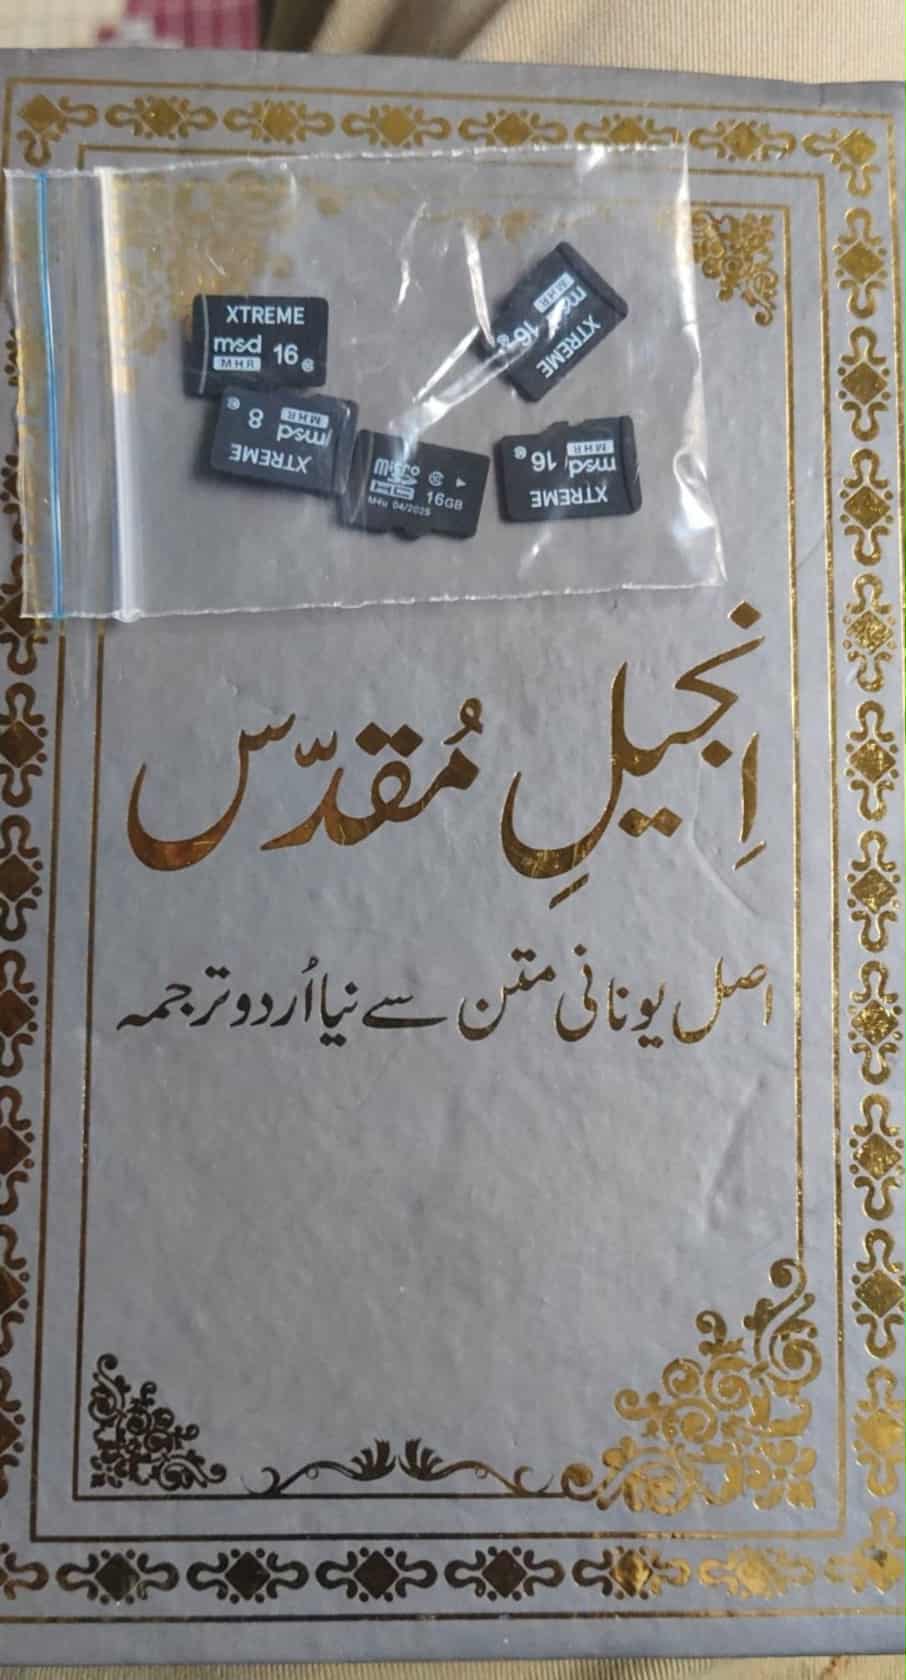 XTREME
msd 16
MHR
XTREME
msd 16
MHR
XTREME
msd 8
MHR
micro
16GB
M4u 04/2025
XTREME
msd 16
MHR
اِنجیلِ مُقدّس
اصل یونانی متن سے نیا اُردو ترجمہ